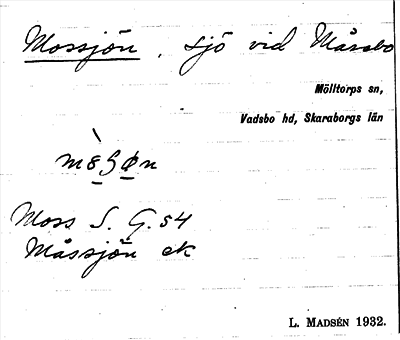 Mossjön, sjö vid Måssbo
Mölltorps sn,
Vadsbo hd, Skaraborgs län
Moss S. G. 54
Måssjön ek
L. MADSÉN 1932.